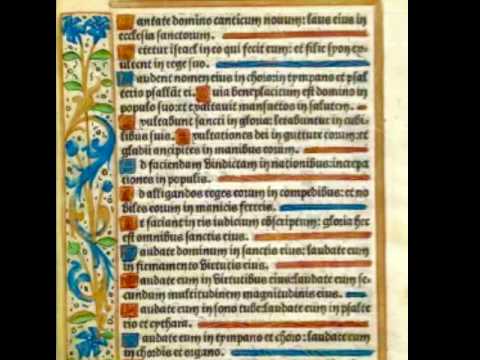 Cantate domino canticum nouum: laus eius in
ecclesia sanctorum.
Letetur israel in eo qui fecit eum: et filie syon ex
ultent in rege suo.
Laudent nomen eius in choro: in tympano et psal
terio psallāt ei. Quia beneplacitum est domino in
populo suo: et exaltauit mansuetos in salutem.
Exultabunt sancti in gloria: letabuntur in cubi
libus suis. Exultationes dei in gutture eorum: et
gladii ancipites in manibus eorum.
Ad faciendam vindictam in nationibus: increpa
tiones in populis.
Ad alligandos reges eorum in compedibus: et no
biles eorum in manicis ferreis.
Ut faciant in eis iudicium cōscriptum: gloria hec
est omnibus sanctis eius.
Laudate dominum in sanctis eius: laudate eum
in firmamento virtutis eius.
Laudate eum in virtutibus eius: laudate eum se
cundum multitudinem magnitudinis eius.
Laudate eum in sono tube: laudate eum in psalte
rio et cythara.
Laudate eum in tympano et choro: laudate eum
in chordis et organo.